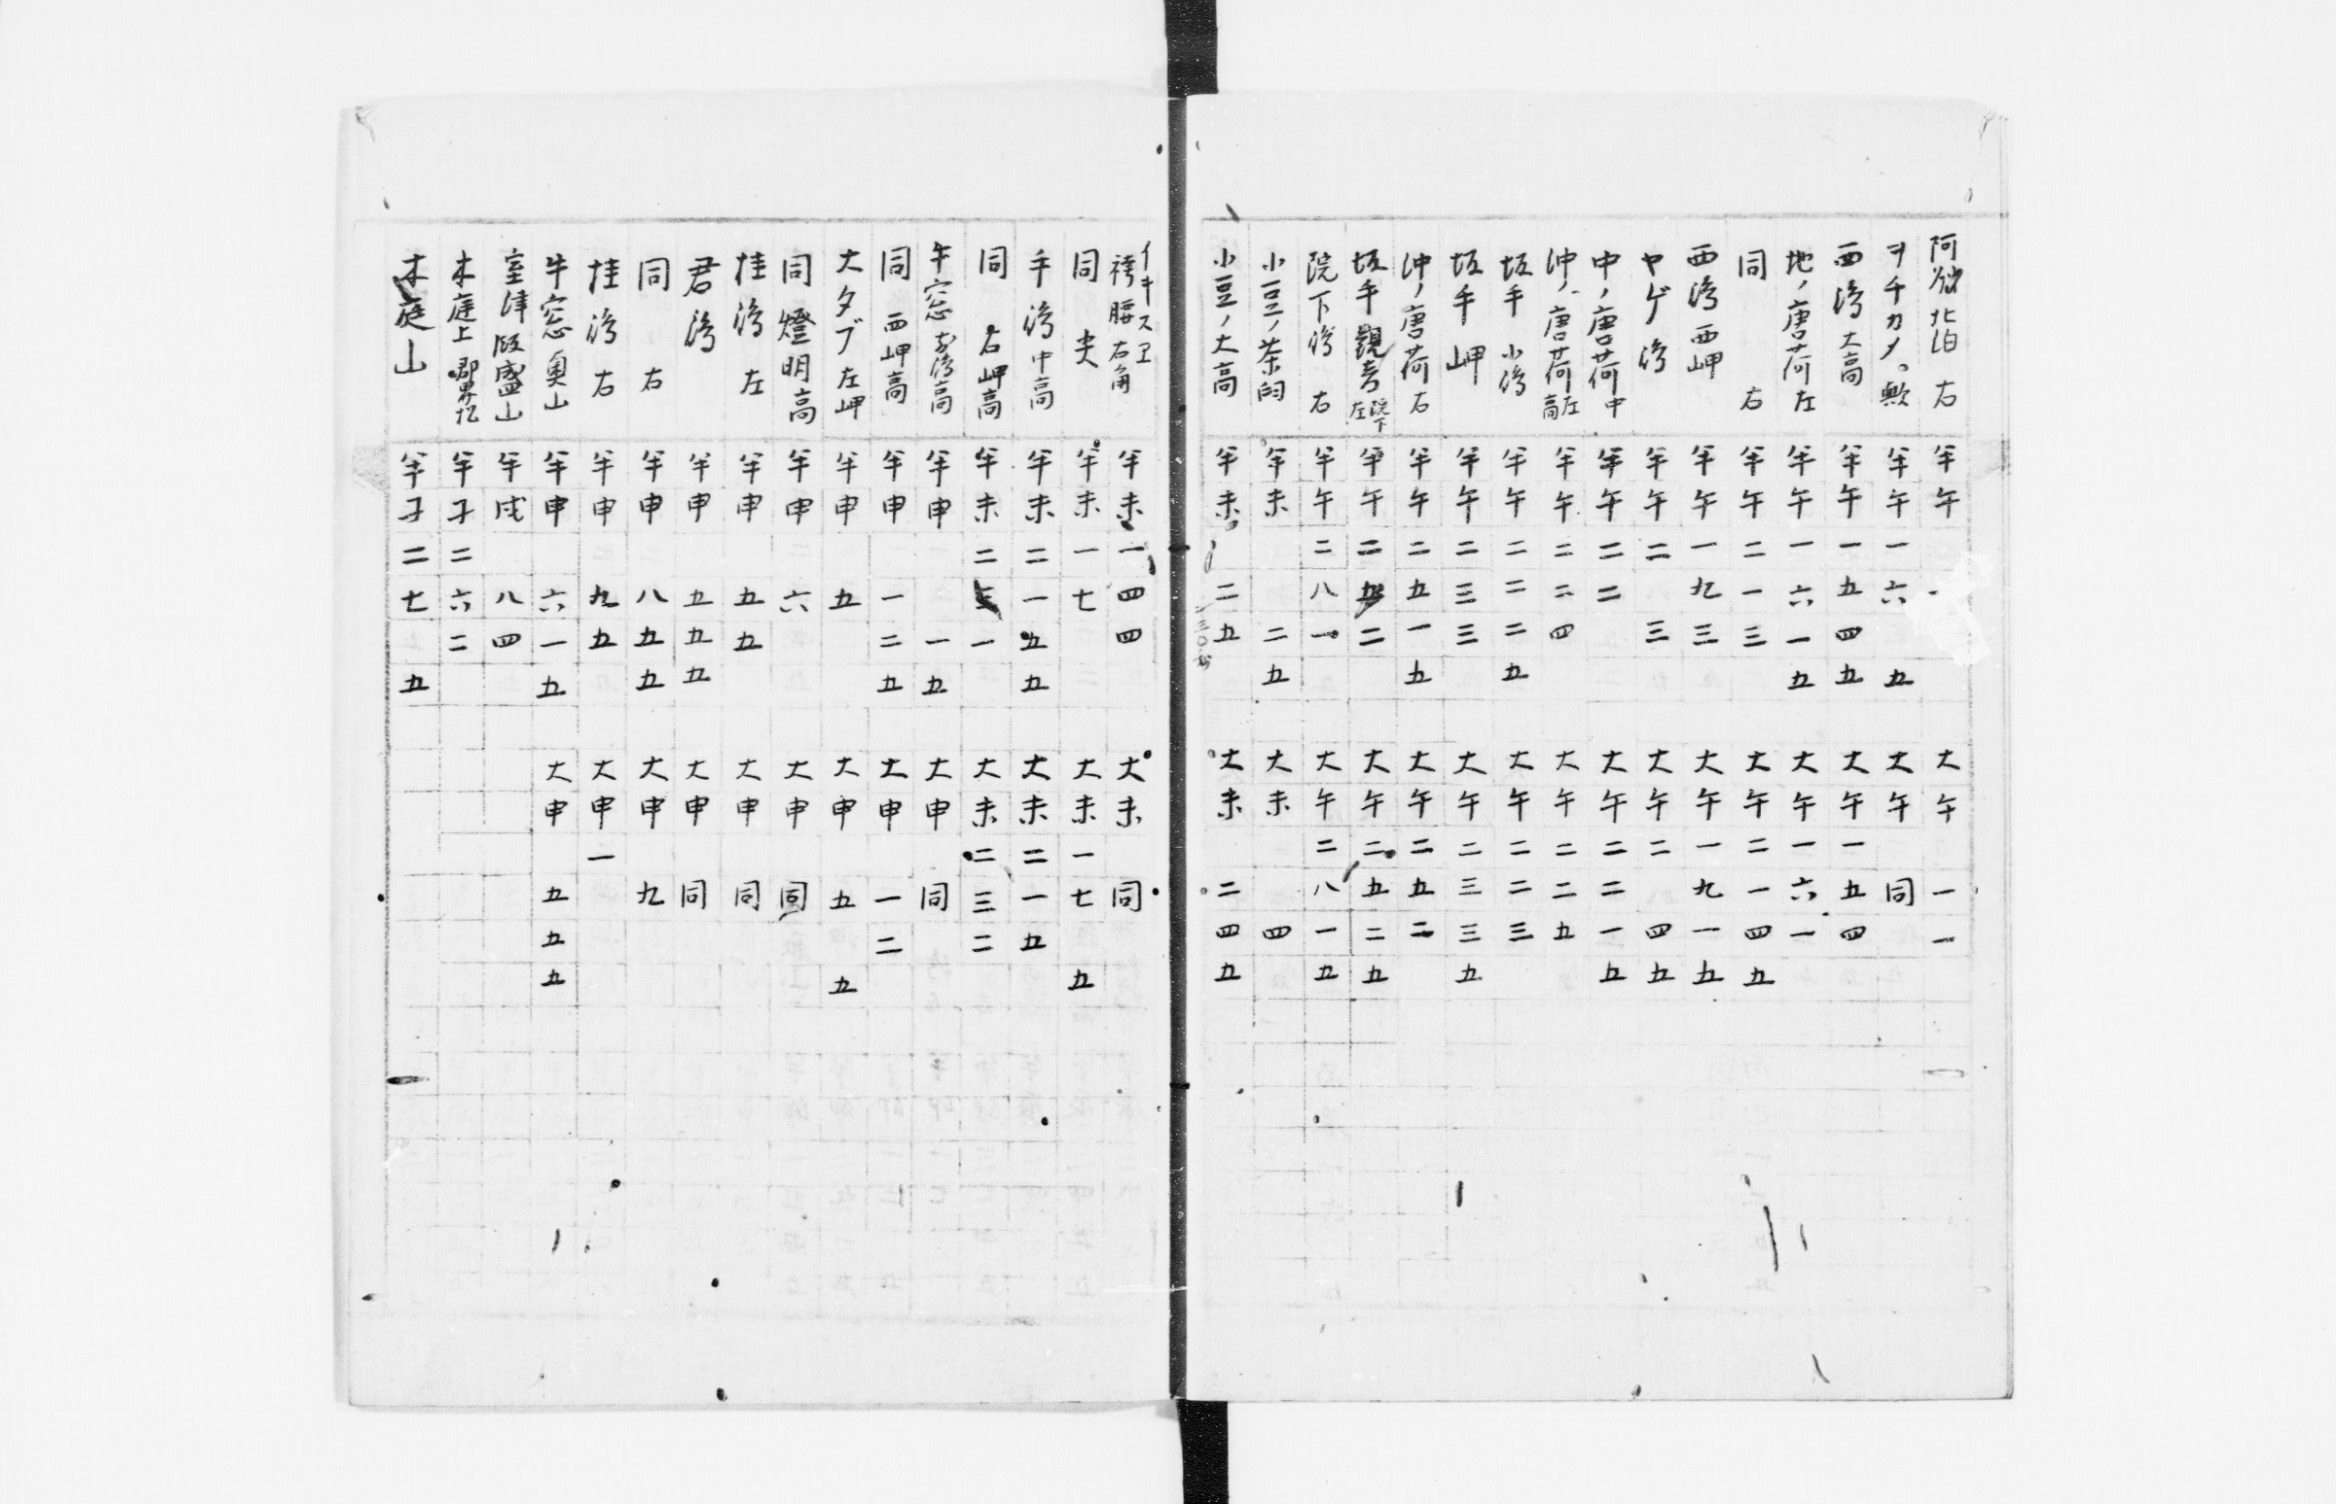 阿 北泊 右 半午 一 大午 一一
ヲチカタ 歟 半午 一六 五 大午 同
西湾 大高 半午 一五四五 大午 一五四
地ノ唐荷 左 半午 一六一五 大午 一六一
同 右 半午 二一三 大午 二一四五
西湾 西岬 半午 一九三 大午 一九一五
ヤゲ湾 半午 二 三 大午 二 四五
中ノ唐荷 中 半午 二二 大午 二二一五
沖ノ唐荷 左高 半午 二二四 大午 二二五
坂手 小湾 半午 二二二五 大午 二二三
坂手岬 半午 二三三 大午 二三三五
沖ノ唐荷 右 半午 二五一五 大午 二五二
坂手 観音 院下左 半午 二五二 大午 二五二五
院下湾 右 半午 二八一 大午 二八一五
小豆ノ茶臼 半未 二五 大未 四
小豆ノ大高 半未 二五 大未 二四五
袴腰 右角 半未 一四四 大未 同
同 半未 一七 大未 一七 五
手湾 中高 半未 二一五五 大未 二一五
同 右岬高 半未 二 一 大未 二三二
牛窓 湾高 半申 一五 大申 同
同 西岬高 半申 一二五 大申 一二
大タブ 左岬 半申 五 大申 五 五
同 燈明高 半申 六 大申 同
桂湾 左 半申 五五 大申 同
君湾 半申 五五五 大申 同
同 右 半申 八五五 大申 九
桂湾 右 半申 九五 大申 一
牛窓 奥山 半申 六一五 大申 五五五
室津 盛山 半戌 八四
木庭上 郡界 半子 二六二
木庭山 半子 二七 五